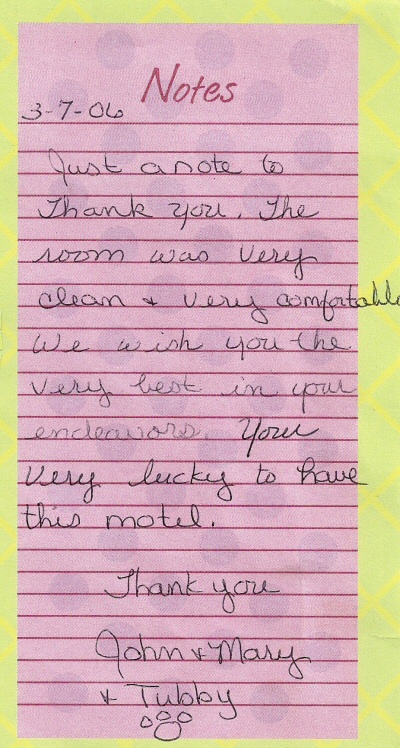 Notes
3-7-06
Just a note to
Thank you. The
room was very
clean + very comfortable
We wish you the
very best in your
endeavors. Your
very lucky to have
this motel.
Thank you
John + Mary
+ Tubby